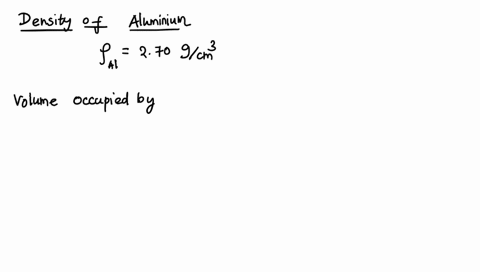 Density of Aluminium
ρ_Al = 2.70 g/cm³
Volume occupied by